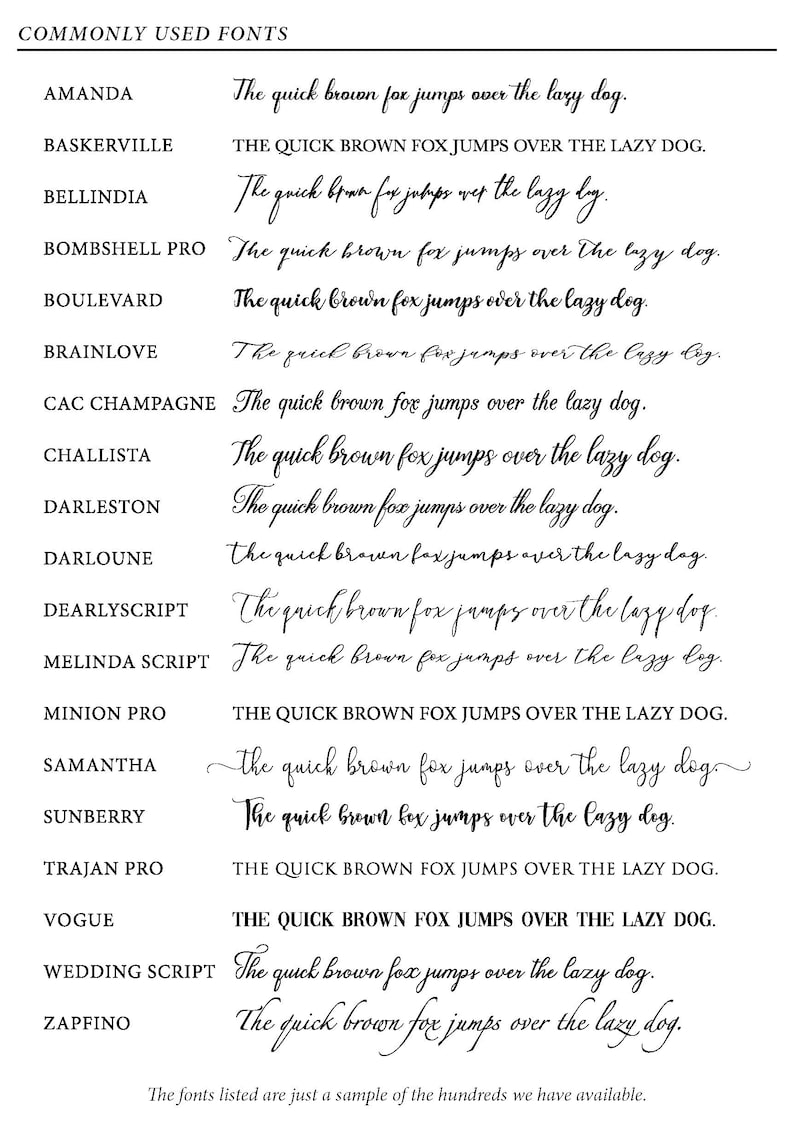 COMMONLY USED FONTS
AMANDA The quick brown fox jumps over the lazy dog.
BASKERVILLE THE QUICK BROWN FOX JUMPS OVER THE LAZY DOG.
BELLINDIA The quick brown fox jumps over the lazy dog.
BOMBSHELL PRO The quick brown fox jumps over the lazy dog.
BOULEVARD The quick brown fox jumps over the lazy dog.
BRAINLOVE The quick brown fox jumps over the lazy dog.
CAC CHAMPAGNE The quick brown fox jumps over the lazy dog.
CHALLISTA The quick brown fox jumps over the lazy dog.
DARLESTON The quick brown fox jumps over the lazy dog.
DARLOUNE the quick brown fox jumps over the lazy dog.
DEARLYSCRIPT The quick brown fox jumps over the lazy dog.
MELINDA SCRIPT The quick brown fox jumps over the lazy dog.
MINION PRO THE QUICK BROWN FOX JUMPS OVER THE LAZY DOG.
SAMANTHA the quick brown fox jumps over the lazy dog.
SUNBERRY The quick brown fox jumps over the lazy dog.
TRAJAN PRO THE QUICK BROWN FOX JUMPS OVER THE LAZY DOG.
VOGUE THE QUICK BROWN FOX JUMPS OVER THE LAZY DOG.
WEDDING SCRIPT The quick brown fox jumps over the lazy dog.
ZAPFINO The quick brown fox jumps over the lazy dog.
The fonts listed are just a sample of the hundreds we have available.